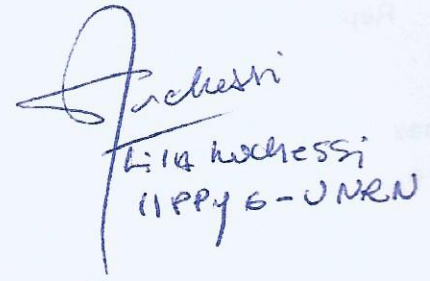 Luchessi
Lila Luchessi
IIPPyG-UNRN